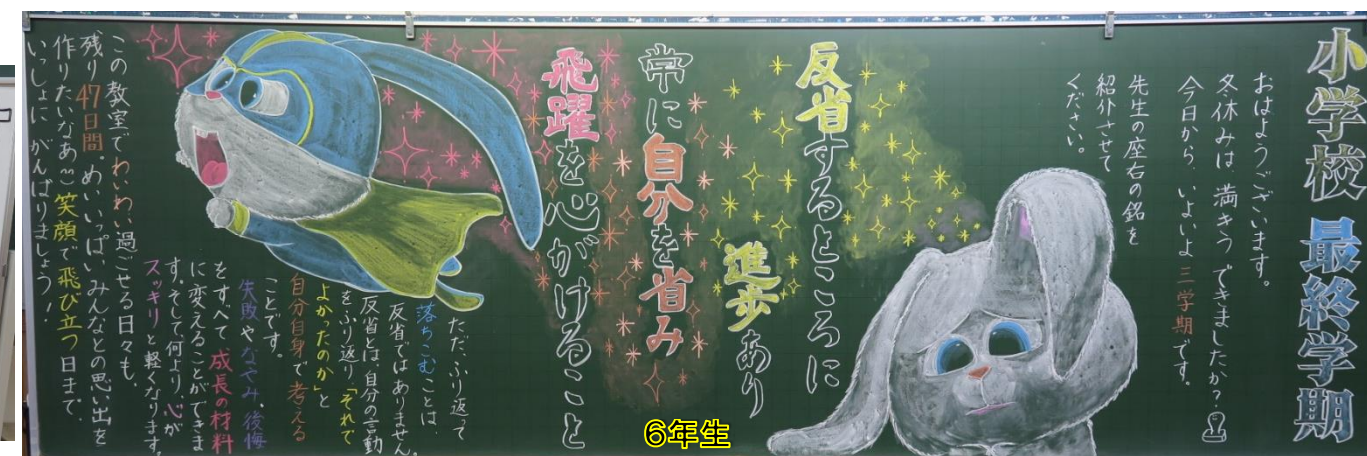 小学校 最終学期
おはようございます。
冬休みは、満きつできましたか？
今日から、いよいよ三学期です。
先生の座右の銘を
紹介させて
ください。
反省するところに
進歩あり
常に自分を省み
飛躍を心がけること
ただ、ふり返って
落ちこむことは、
反省ではありません。
反省とは、自分の言動
をふり返り、「それで
よかったのか」と
自分自身で考える
ことです。
失敗やなやみ、後悔
をすべて成長の材料
に変えることができま
す。そして何より、心が
スッキリと軽くなります。
この教室でわいわい過ごせる日々も、
残り47日間。めいいっぱい、みんなとの思い出を
作りたいなあ〜笑顔で飛び立つ日まで、
いっしょに がんばりましょう！
6年生